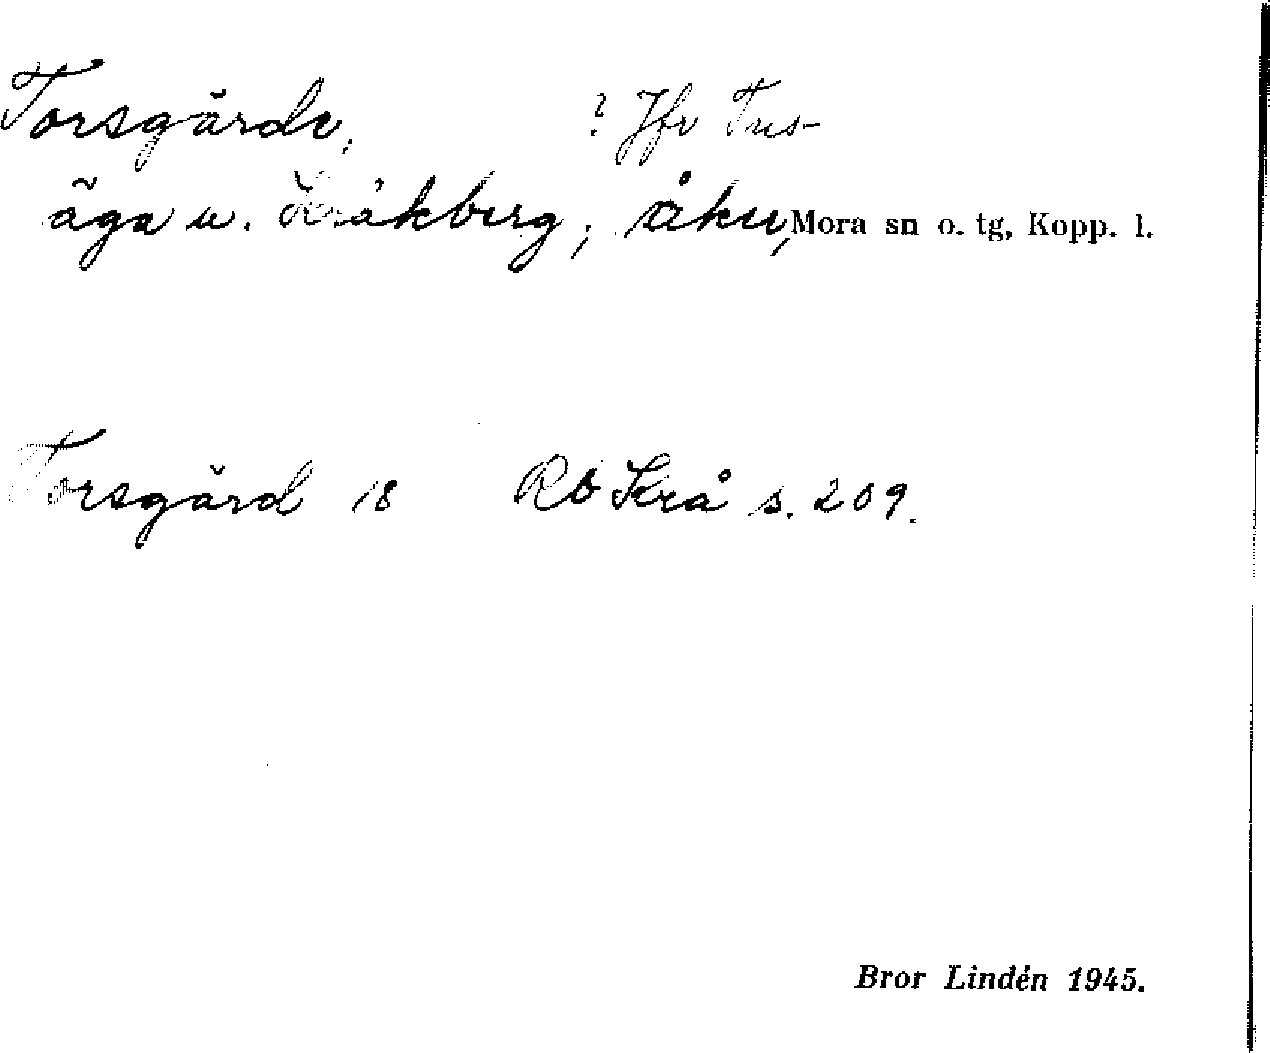 Torsgärde, ? Jfr Tus-
äga u. Kråkberg, åker, Mora sn o. tg, Kopp. l.
Torsgärd 18 RÖ Krå s. 209.
Bror Lindén 1945.